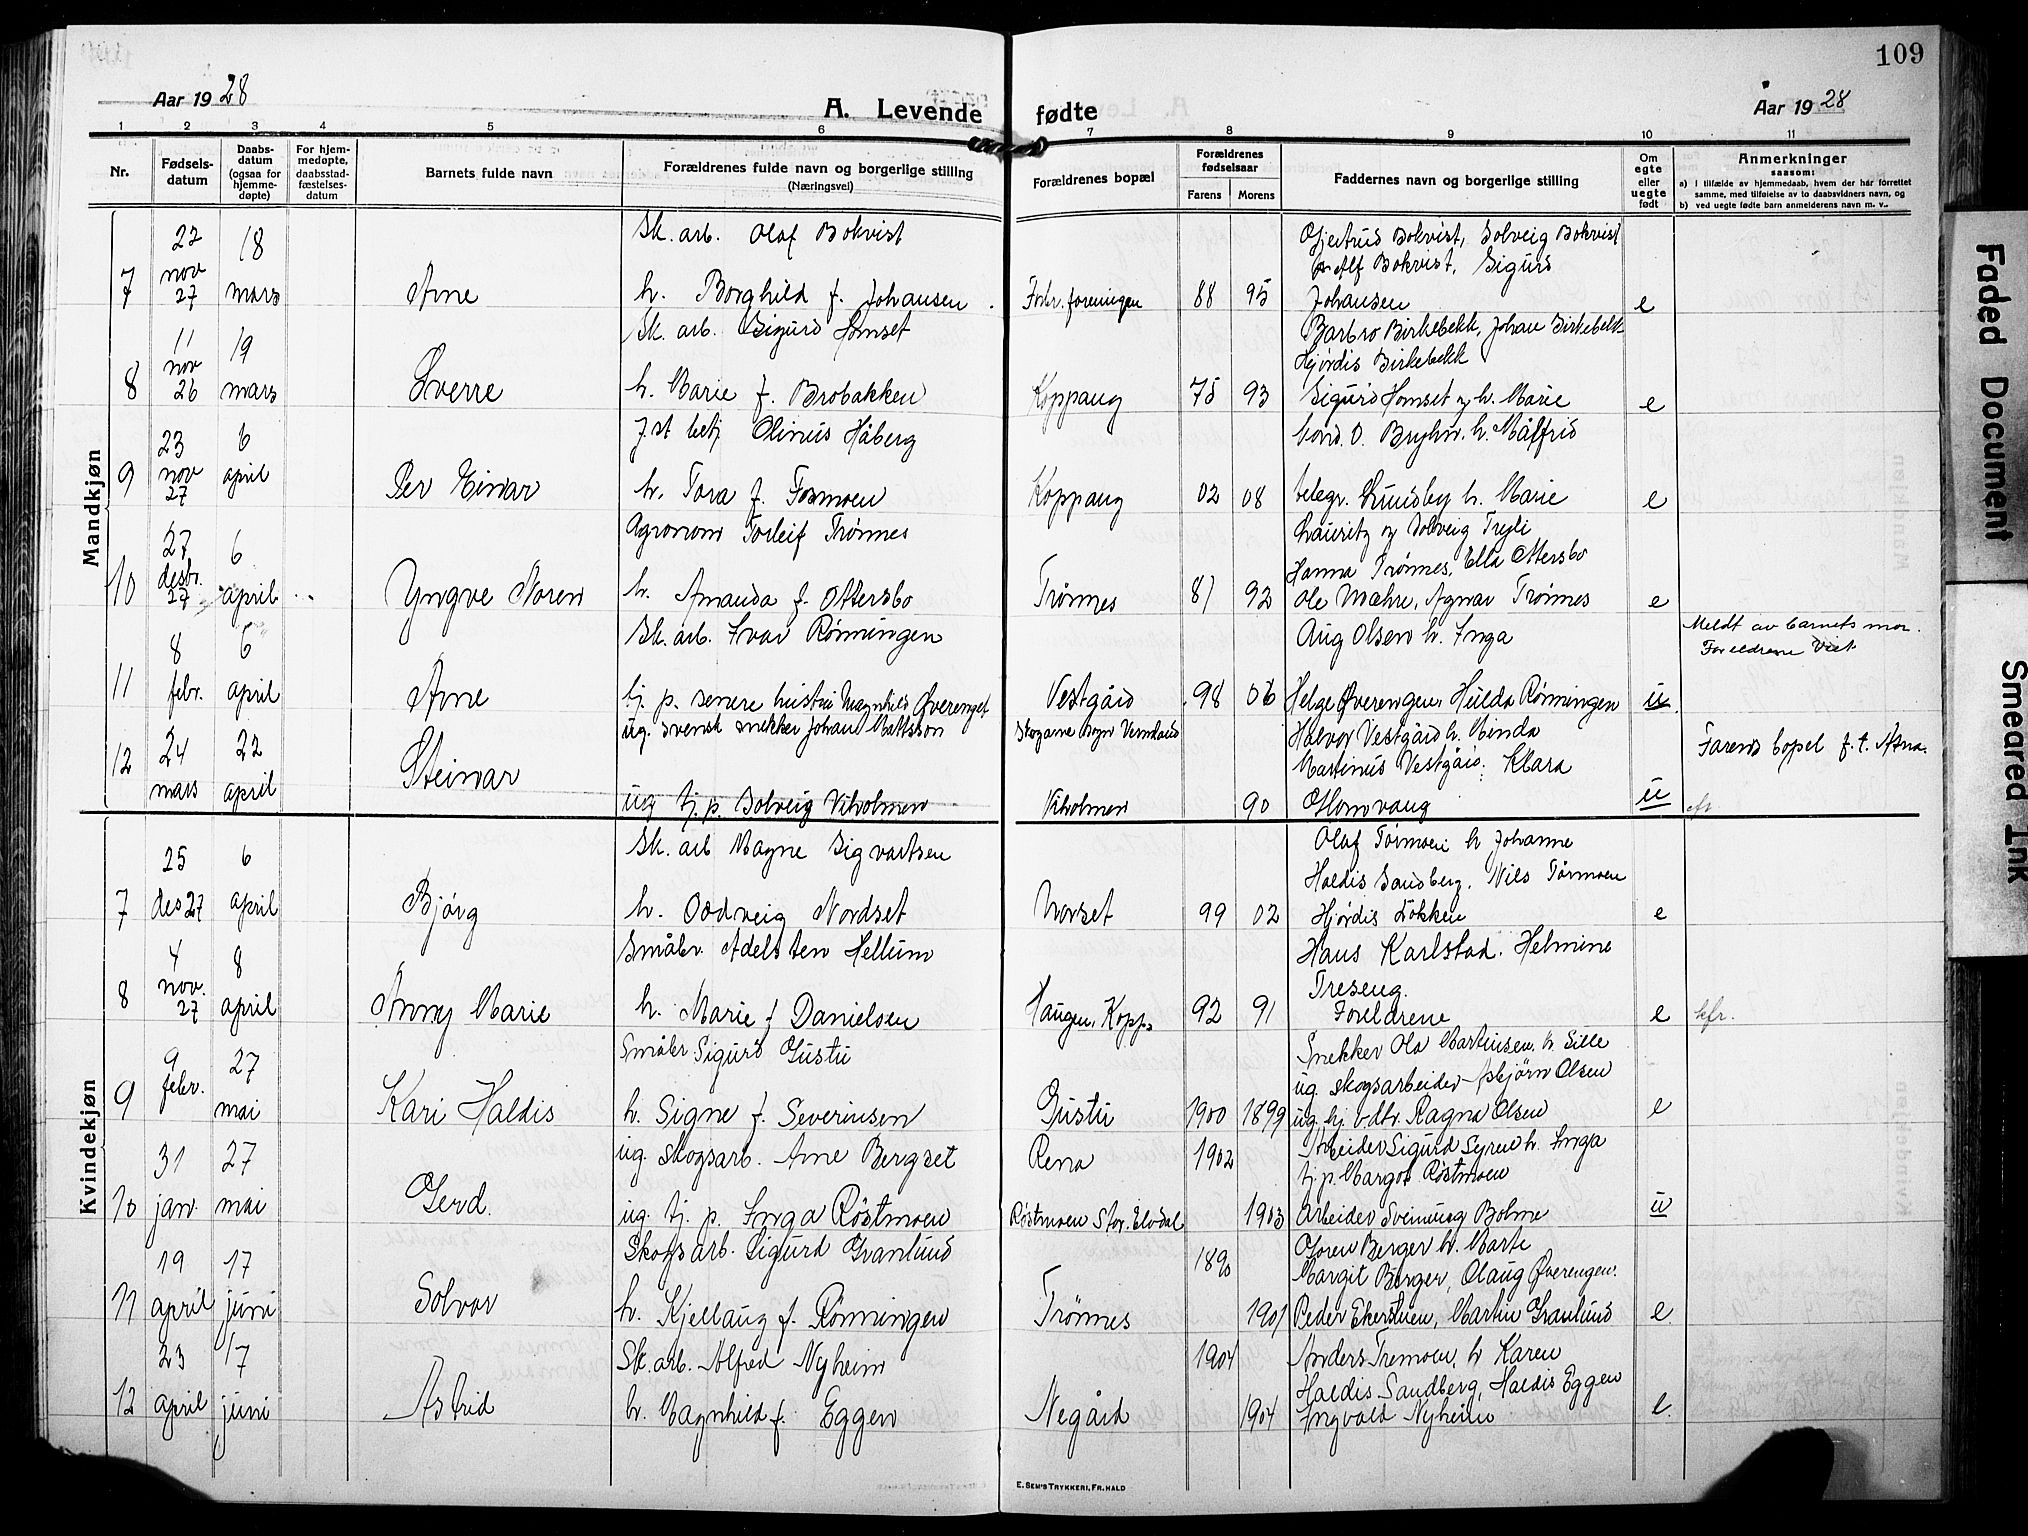 109
Aar 1928
A. Levende fødte
Aar 1928
1 2 3 4 5 6 7 8 9 10 11
Nr.
Fødsels-datum
Daabs-datum (ogsaa for hjemme-døpte)
For hjem-medøpte, daabsstad-fæstelses-datum
Barnets fulde navn
Forældrenes fulde navn og borgerlige stilling
(Næringsvei)
Forældrenes bopæl
Forældrenes fødselsaar
Farens Morens
Faddernes navn og borgerlige stilling
Om egte eller uegte født
Anmerkninger
saasom:
a) i tilfælde av hjemmedaab, hvem der har forrettet
samme, med tilføielse av to daabsvidners navn, og
b) ved uegte fødte barn anmelderens navn m. v..
Mandkjøn
7 22 nov 27 18 mars Arne
Sk. arb. Olaf Bokvist
h. Borghild f. Johansen
Forbr. foreningen 88 95
Gjertrud Bokvist, Solveig Bokvist
Alf Bokvist, Sigurd
Johansen e
8 11 nov 26 19 mars Sverre
Sk. arb. Sigurd Homset
h. Marie f. Brobakken
Koppang 75 93
Barbro Birkebekk, Johan Birkebekk
Hjørdis Birkebekk
Sigurd Homset og h. Marie e
9 23 nov 27 6 april Per Einar
J.st betj Olinus Håberg
h. Tora f. Formoen
Koppang 02 08
O. Bryhn. h. Målfrid
telegr. Lundby h. Marie e
Lauritz og Solveig Tryli
10 27 desbr. 27 6 april Yngve Noren
Agronom Torleif Trønnes
h. Amanda f. Ottersbo
Trønnes 87 92
Hanna Trønnes, Ella Ottersbo
Ole Mæhre, Agnar Trønnes e
11 8 febr. 6 april Arne
Sk. arb. Ivar Rønningen
tj. p. senere hustru Magnhild Øverenget
Vestgård 98 06
Aug Olsen h. Inga
Helge Øverengen, Hulda Rønningen u
Meldt av barnets mor.
Foreldrene viet
12 24 mars 22 april Steinar
ug. svensk snekker Johan Mattsson
ug tj. p. Solveig Viholmen
Skogarne sogn Vermland
Viholmen 90
Halvor Vestgård h. Minda
Martinus Vestgård, Klara
Homvang u
Farens bopel f. t. Atna.
Kvindekjøn
7 25 des 27 6 april Bjørg
Sk. arb Magne Sigvartsen
h. Oddveig Nordset
Norset 99 02
Olaf Tørmoen h Johanne
Haldis Sandberg. Nils Tørmoen
Hjørdis Løkken e
8 4 nov. 27 8 april Anny Marie
Småbr. Adelsten Hellum
h. Marie f Danielsen
Haugen, Kopp. 92 91
Haus Karlstad. Helmine
Treseng.
Foreldrene e kfr.
9 9 febr. 27 mai Kari Haldis
Småbr Sigurd Gustu
h. Signe f. Severinsen
Gustu 1900 1899
Snekker Ola Martinsen. h Sille
ug. skogsarbeider Asbjørn Olsen
ug. hj. v. dtr. Ragna Olsen e
10 31 jan. 27 mai Gerd.
ug. skogsarb. Arne Bergset
ug. tj. p. Inga Røstmoen
Rena 1902
Røstmoen Stor. Elvdal 1903
Arbeider Sigurd Syren h. Inga
tj. p. Margot Røstmoen
Arbeider Sveinung Bolme u
11 19 april 17 juni Solvor
Skogsarb. Sigurd Granlund
h. Kjellaug f. Rønningen
Trønnes 1890 1901
Goren Berger h. Marte
Margit Berger, Olaug Øverengen.
Peder Ekerstuen, Martin Granlund e
12 23 april 17 juni Astrid
Sk. arb. Alfred Nyheim
h. Magnhild f. Eggen
Negård 1904 1904
Anders Tremoen, h Karen
Haldis Sandberg, Haldis Eggen
Ingvald Nyheim e.
E. SEM'S TRYKKERI, FR. HALD
Faded Document
Smeared Ink